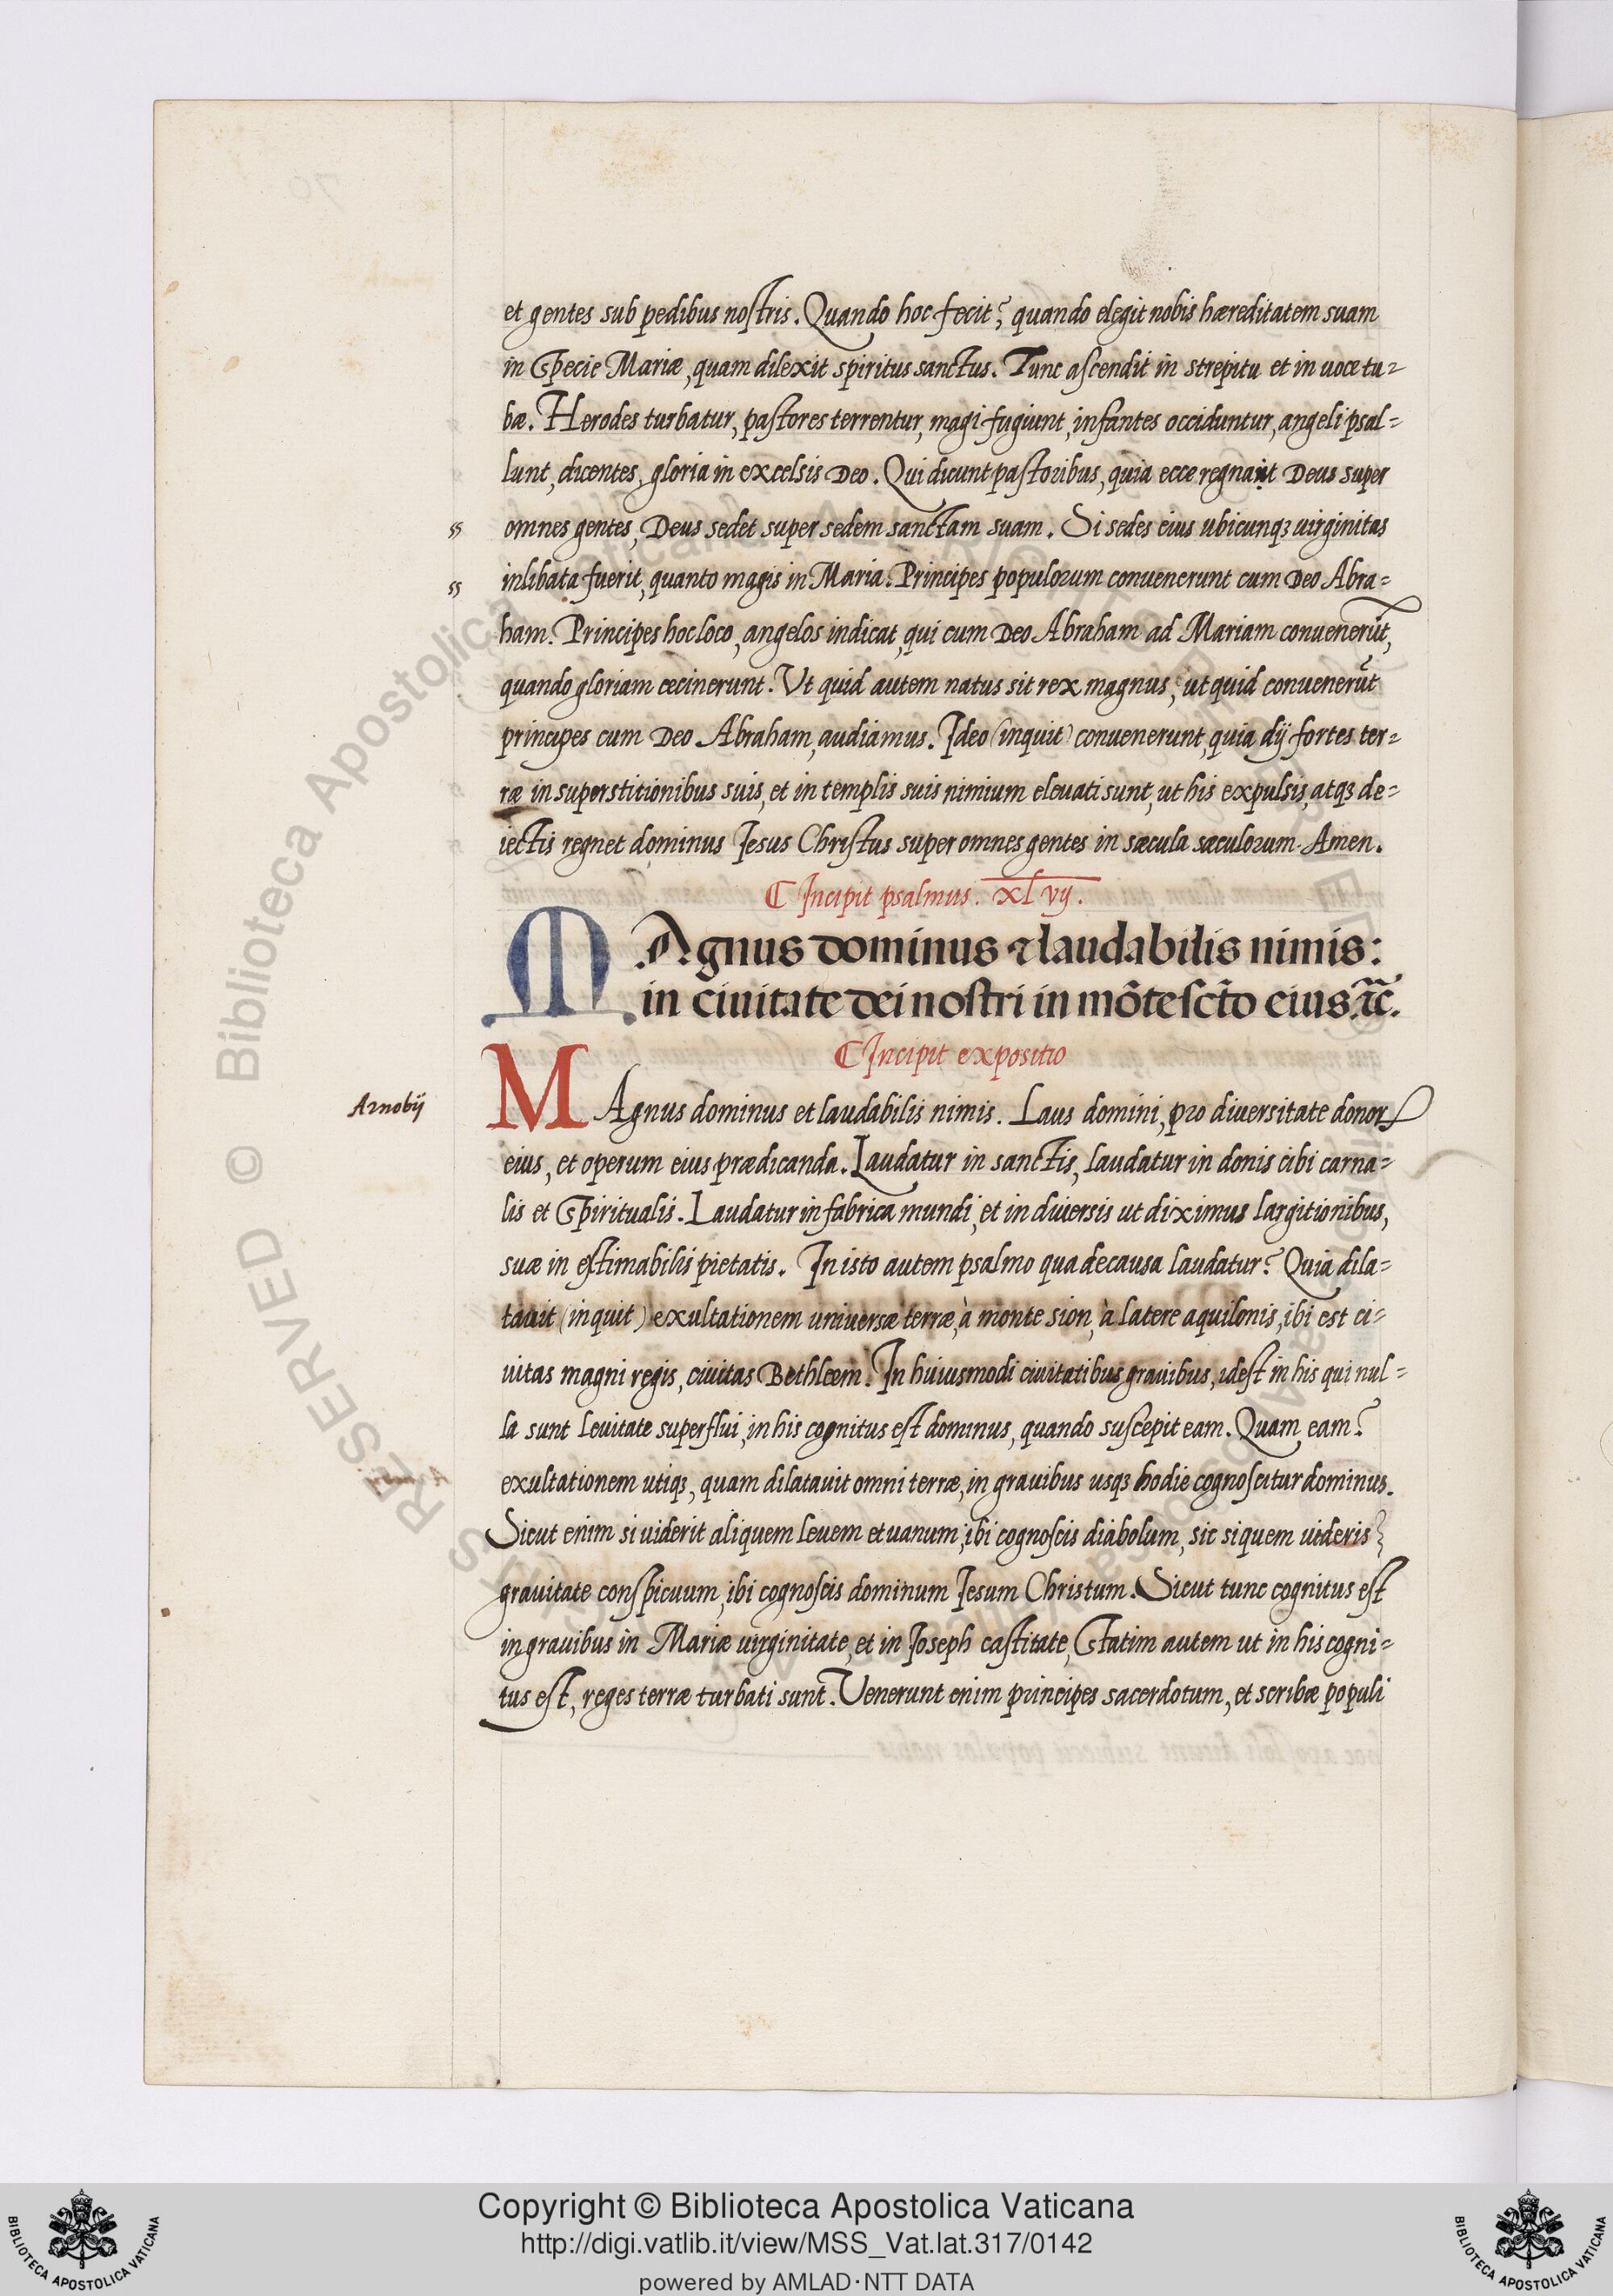 et gentes sub pedibus nostris. Quando hoc fecit? quando elegit nobis hæreditatem suam
in specie Mariæ, quam dilexit spiritus sanctus. Tunc ascendit in strepitu et in uoce tu=
bæ. Herodes turbatur, pastores terrentur, magi fugiunt, infantes occiduntur, angeli psal=
lunt, dicentes, gloria in excelsis Deo. Qui dicunt pastoribus, quia ecce regnauit Deus super
ss omnes gentes, Deus sedet super sedem sanctam suam. Si sedes eius ubicunqȝ uirginitas
ss inlibata fuerit, quanto magis in Maria. Principes populorum conuenerunt cum Deo Abra=
ham. Principes hoc loco, angelos indicat, qui cum Deo Abraham ad Mariam conuenerūt,
quando gloriam cecinerunt. Vt quid autem natus sit rex magnus, ut quid conuenerūt
principes cum Deo Abraham, audiamus. Ideo (inquit) conuenerunt, quia dij fortes ter=
ræ in superstitionibus suis, et in templis suis nimium eleuati sunt, ut his expulsis, atqȝ de=
iectis regnet dominus Jesus Christus super omnes gentes in sæcula sæculorum. Amen.
⁋ Incipit psalmus. xlvij.
MAgnus dominus ⁊ laudabilis nimis:
in ciuitate dei nostri in mōte scto eius. ⁊c̃.
⁋ Incipit expositio
Arnobij
MAgnus dominus et laudabilis nimis. Laus domini, pro diuersitate donorꝝ
eius, et operum eius prædicanda. Laudatur in sanctis, laudatur in donis cibi carna=
lis et spiritualis. Laudatur in fabrica mundi, et in diuersis ut diximus largitionibus,
suæ in estimabilis pietatis. In isto autem psalmo qua de causa laudatur? Quia dila=
tauit (inquit) exultationem uniuersæ terræ, à monte sion, à latere aquilonis, ibi est ci=
uitas magni regis, ciuitas Bethleem. In huiusmodi ciuitatibus grauibus, idest in his qui nul=
la sunt leuitate superflui, in his cognitus est dominus, quando suscepit eam. Quam eam?
exultationem utiqȝ, quam dilatauit omni terræ, in grauibus usqȝ hodie cognoscitur dominus.
Sicut enim si uiderit aliquem leuem et uanum, ibi cognoscis diabolum, sic si quem uideris
grauitate conspicuum, ibi cognoscis dominum Jesum Christum. Sicut tunc cognitus est
in grauibus in Mariæ uirginitate, et in Joseph castitate, statim autem ut in his cogni=
tus est, reges terræ turbati sunt. Venerunt enim principes sacerdotum, et scribæ populi
© Biblioteca Apostolica Vaticana
RESERVED
Copyright © Biblioteca Apostolica Vaticana
http://digi.vatlib.it/view/MSS_Vat.lat.317/0142
powered by AMLAD·NTT DATA
BIBLIOTECA APOSTOLICA VATICANA
BIBLIOTECA APOSTOLICA VATICANA